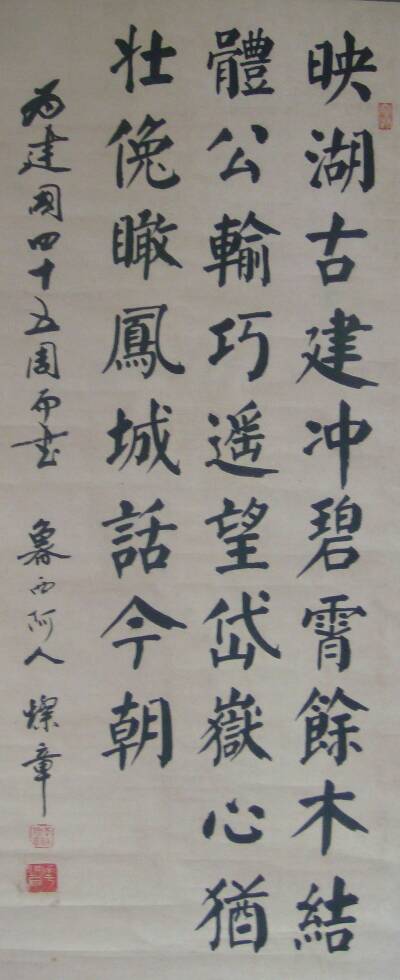 映湖古建冲碧霄餘木結
體公輸巧遥望岱嶽心猶
壯俛瞰鳳城話今朝
为建国四十五周而书 鲁西阿人 燦章